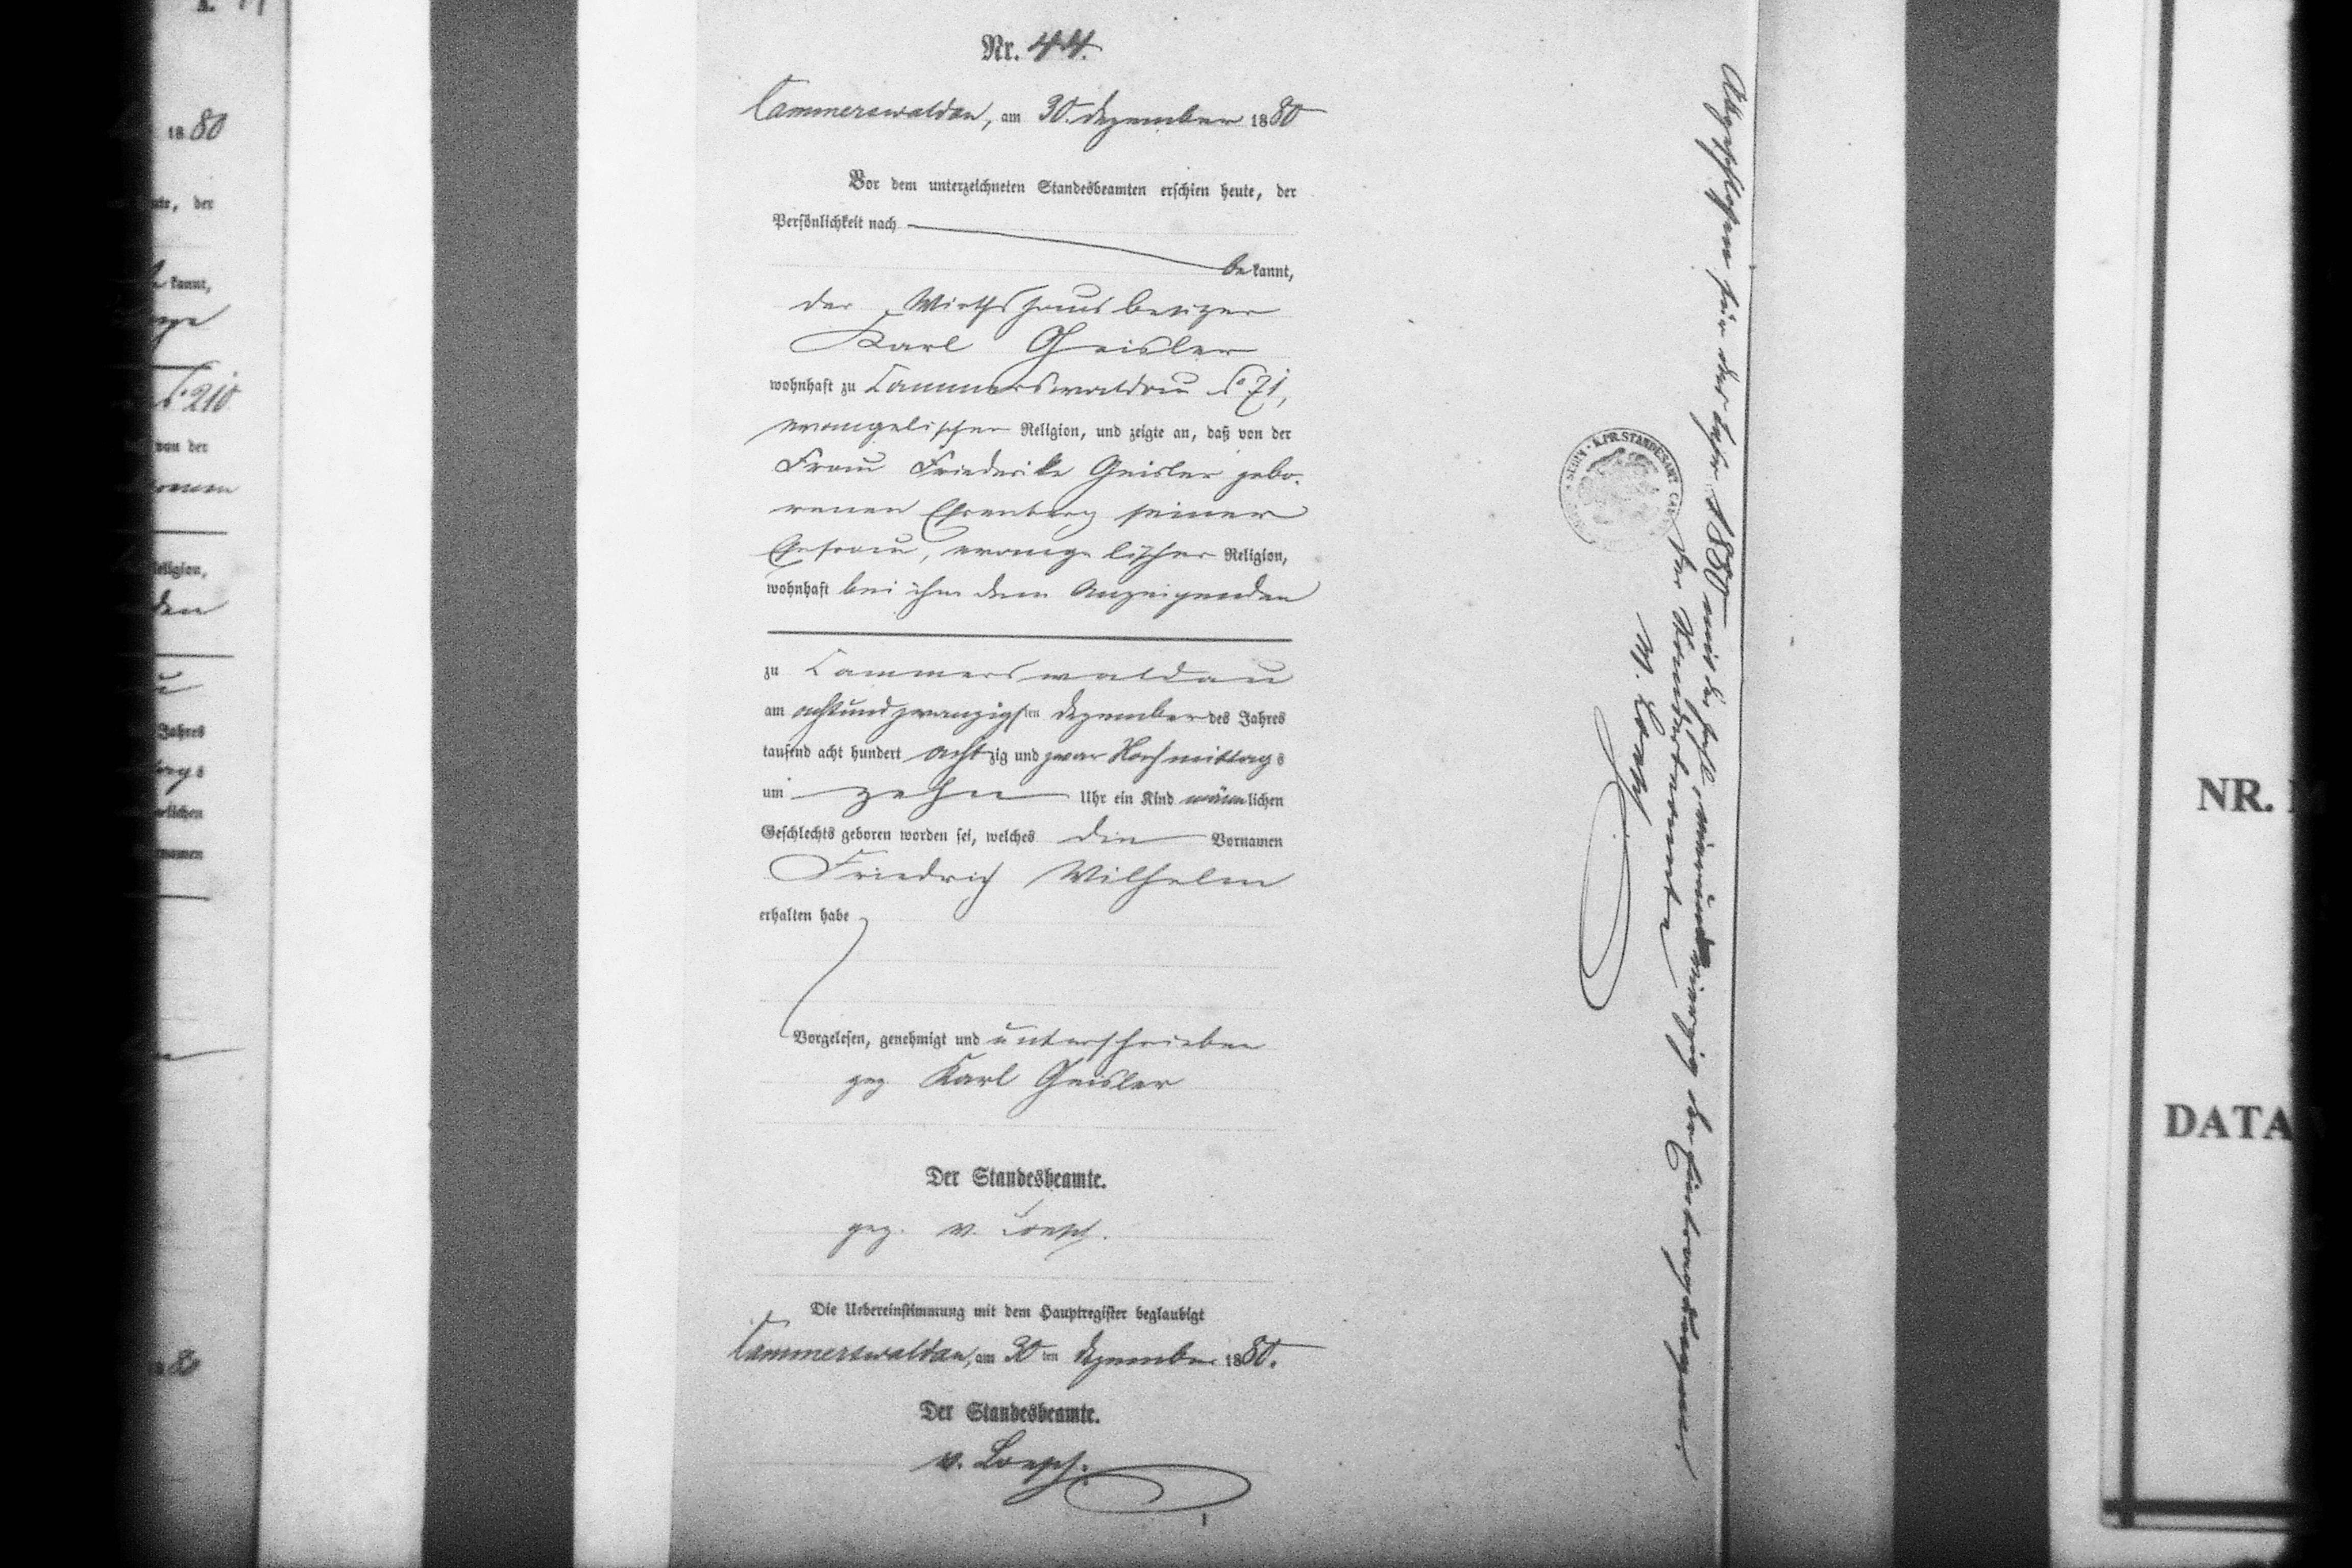 18 80
te, der
kannt,
No 210
von der
Religion,
den
Jahres
tags
lichen
namen
Nr. 44.
Cammerswaldau, am 30. Dezember 1880
Vor dem unterzeichneten Standesbeamten erschien heute, der
Persönlichkeit nach
be kannt,
der Wirthshausbesizer
Karl Geisler
wohnhaft zu Cammerswaldau No 71,
evangelischer Religion, und zeigte an, daß von der
Frau Friederike Geisler gebo-
renen Ehrenberg seiner
Ehefrau, evangelischer Religion,
wohnhaft bei ihm dem Anzeigenden
zu Cammerswaldau
am achtundzwanzigsten Dezember des Jahres
tausend acht hundert achtzig und zwar Nachmittags
um zehn Uhr ein Kind männlichen
Geschlechts geboren worden sei, welches die Vornamen
Friedrich Wilhelm
erhalten habe
Vorgelesen, genehmigt und unterschrieben
gez Karl Geisler
Der Standesbeamte.
gez. v. Loesch.
Die Uebereinstimmung mit dem Hauptregister beglaubigt
Cammerswaldau, am 30 ten Dezember 1880.
Der Standesbeamte.
v. Loesch.
Abgeschlossen für das Jahr 1880 mit der Zahl vierundvierzig der Eintragungen.
Der Standesbeamte
v. Loesch
K. PR. STANDESAMT
NR.
DATA